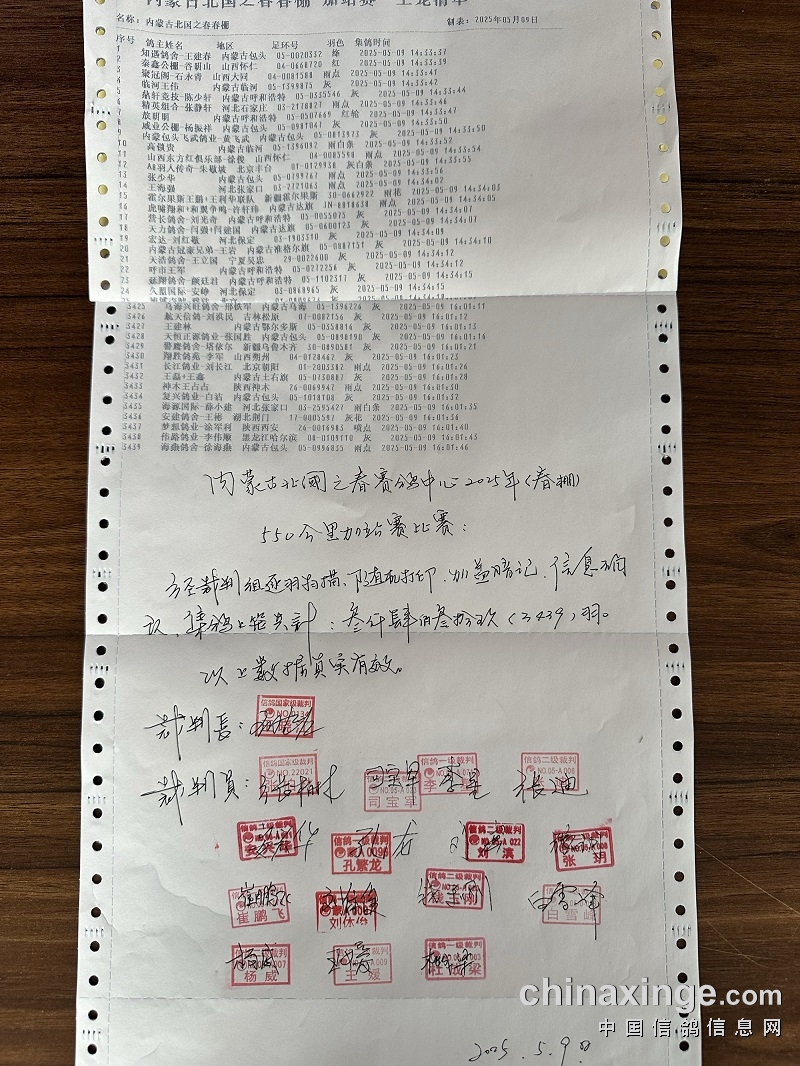 内蒙古北国之春春棚 加站赛 上笼清单
名称: 内蒙古北国之春春棚 制表: 2025年05月09日
序号 鸽主姓名 地区 足环号 羽色 集鸽时间
1 知遇鸽舍-王建春 内蒙古包头 05-0020332 绛 2025-05-09 14:33:37
2 秦鑫公棚-谷朝山 山西怀仁 04-0668720 红 2025-05-09 14:33:39
3 聚冠阁-石永青 山西大同 04-0081588 雨点 2025-05-09 14:33:41
4 临河王伟 内蒙古临河 05-1399875 灰 2025-05-09 14:33:42
5 鼎轩竞技-陈少轩 内蒙古呼和浩特 05-0335546 灰 2025-05-09 14:33:44
6 精英组合-张静轩 河北石家庄 03-2178827 雨点 2025-05-09 14:33:46
7 敖明明 内蒙古呼和浩特 05-0507669 红轮 2025-05-09 14:33:47
8 威业公棚-杨振祥 内蒙古包头 05-0981047 灰 2025-05-09 14:33:50
9 内蒙古包头飞武鸽业-黄飞武 内蒙古包头 05-0813973 灰 2025-05-09 14:33:50
10 高锁贵 内蒙古临河 05-1396092 雨白条 2025-05-09 14:33:52
11 山西东方红俱乐部-徐俊 山西怀仁 04-0085598 雨点 2025-05-09 14:33:54
12 AB羽人传奇-朱敬坡 北京丰台 01-0129938 灰白条 2025-05-09 14:33:55
13 张少华 内蒙古包头 05-0799767 雨点 2025-05-09 14:33:56
14 王海强 河北张家口 03-2721063 雨点 2025-05-09 14:33:58
15 霍尔果斯王鹏+王利华联队 新疆霍尔果斯 30-0662922 雨花 2025-05-09 14:34:03
16 虎啸翔和+和翼争鸣-许轩玮 内蒙古达旗 2025-05-09 14:34:05
17 营长鸽舍-刘光奇 内蒙古呼和浩特 05-0055075 灰 2025-05-09 14:34:07
18 天力鸽舍-闫强+闫建国 内蒙古达旗 05-0600123 灰 2025-05-09 14:34:07
19 宏达-刘红敬 河北保定 03-1903310 灰 2025-05-09 14:34:09
20 内蒙古冠豪兄弟-王岩 内蒙古准格尔旗 05-0887151 灰 2025-05-09 14:34:10
21 天浩鸽舍-王立国 宁夏吴忠 29-0022600 灰 2025-05-09 14:34:12
22 呼市王军 内蒙古呼和浩特 05-0272256 灰 2025-05-09 14:34:12
23 内蒙古呼和浩特 05-1102317 灰 2025-05-09 14:34:15
24 久盟国际-安峥 河北保定 03-0868965 灰 2025-05-09 14:34:15
3425 乌海兴旺鸽舍-邢铁军 内蒙古乌海 05-1396226 灰 2025-05-09 16:01:11
3426 航天信鸽-刘洪民 吉林松原 07-0082156 灰 2025-05-09 16:01:12
3427 王建林 内蒙古鄂尔多斯 05-0358816 灰 2025-05-09 16:01:13
3428 天恒正源鸽业-张国胜 内蒙古包头 05-0898190 灰 2025-05-09 16:01:16
3429 詹鹰鸽舍-塔依尔 新疆乌鲁木齐 30-0890581 灰 2025-05-09 16:01:21
3430 翔胜鸽苑-李军 山西朔州 04-0128462 灰 2025-05-09 16:01:23
3431 长江鸽业-刘长江 北京朝阳 01-2003382 雨点 2025-05-09 16:01:26
3432 王磊+王鑫 内蒙古土右旗 05-0730887 灰 2025-05-09 16:01:28
3433 神木王占占 陕西神木 26-0069947 雨点 2025-05-09 16:01:30
3434 复兴鸽业-白沾 内蒙古包头 05-1018108 灰 2025-05-09 16:01:32
3435 海源国际-薛小建 河北张家口 03-2595427 雨白条 2025-05-09 16:01:35
3436 安建鸽舍-王彬 湖北荆门 17-0005597 灰花 2025-05-09 16:01:38
3437 梦想鸽业-涂军利 陕西西安 26-0016983 雨点 2025-05-09 16:01:40
3438 伟路鸽业-李伟顺 黑龙江哈尔滨 08-0109110 灰 2025-05-09 16:01:43
3439 海燕鸽舍-徐海燕 内蒙古包头 05-0996835 雨点 2025-05-09 16:01:46
内蒙古北國之春赛鸽中心2025年(春棚)
550公里加站赛比赛:
兹经裁判组逐羽扫描、随直机打印、加盖暗记、信息确
认,集鸽上笼共計:叁仟肆佰叁拾玖(3439)羽。
以上数据真实有效。
信鸽国家级裁判
裁判長:
信鸽国家级裁判 信鸽一级裁判 信鸽二级裁判
NO.22021
裁判員: 司宝军 张迪
司宝军
信鸽二级裁判 信鸽一级裁判 信鸽二级裁判
孔繁龙 刘滨 张玥
信鸽二级裁判 信鸽二级裁判
崔鹏飞 白雪峰
信鸽二级裁判 信鸽一级裁判
杨威 王媛
2025.5.9日
chinaxinge.com
中国信鸽信息网